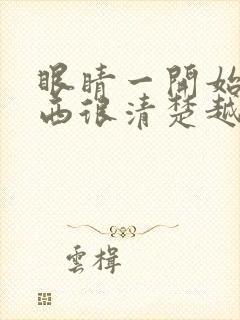 眼睛一開始
西很清楚越
雲楫